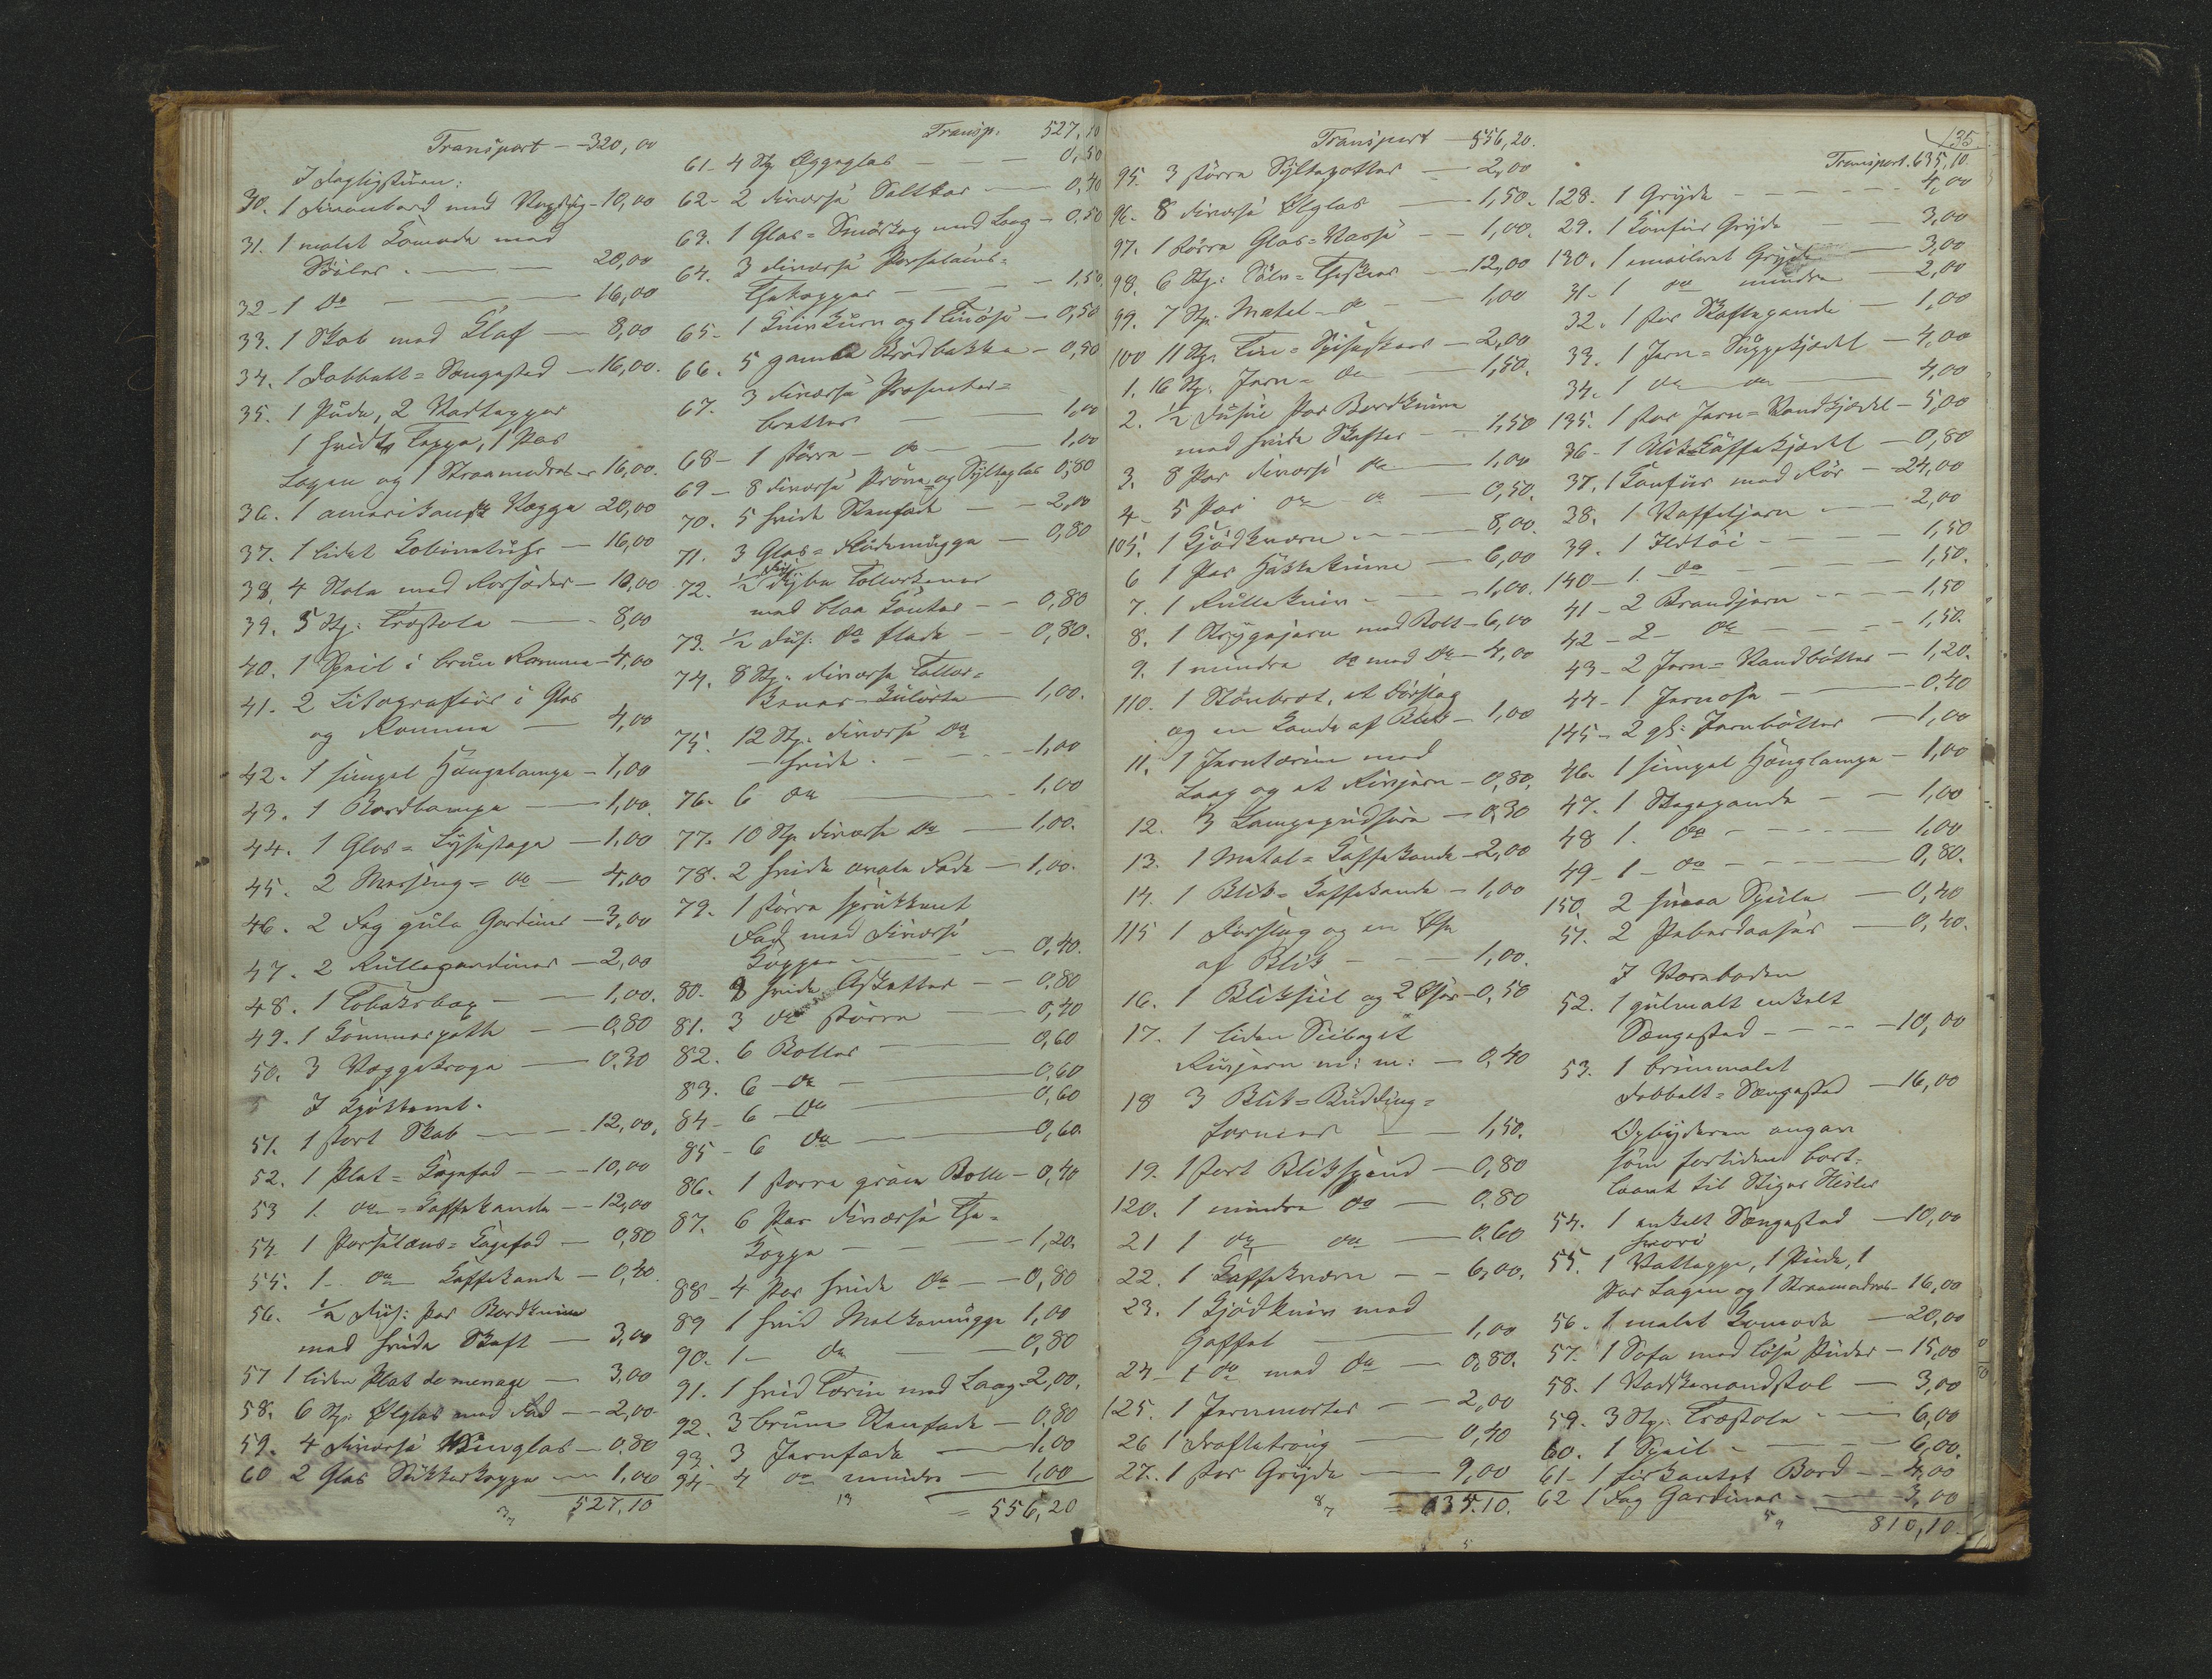 Transport — 320,00
I Dagligstuen:
30. 1 Divanbord med Voxdug - 10,00
31. 1 malet Komode med
Söiler. — 20,00
32 - 1 do — 16,00
33. 1 Skab med Glas — 8,00
34. 1 Dobbelt = Sængested — 16,00.
35. 1 Püde, 2 Vattepper
1 hvidt Teppe, 1 Par
Lagen og 1 Straamadras — 16,00.
36. 1 amerikansk Vogge 20,00
37. 1 lidet Kobinetuhr — 16,00
38. 4 Stole med Rorsæder — 10,00
39. 5 Stk: Træstole — 8,00
40. 1 Speil i brun Ramme — 4,00
41. 2 Litografier i Glas
og Ramme — 4,00
42. 1 simpel Hængelampe — 1,00
43. 1 Bordlampe — 1,00.
44. 1 Glas = Lysestage — 1,00
45. 2 Messing = do — 4,00
46. 2 Fag gule Gardiner — 3,00
47. 2 Rullegardiner — 2,00
48. 1 Tobaksbox — 1,00.
49. 1 Kommerpotte — 0,80
50. 3 Væggekroge — 0,30
I Kjökkenet.
51. 1 stort Skab — 12,00,
52. 1 Plet = Kagefad — 10,00
53 1. do = Kaffekande — 12,00
54. 1 Porselæns = Kagefad — 0,80
55. 1 - do Kaffekande — 0,40.
56. ½ Dus: Par Bordknive
med hvide Skaft — 3,00
57 1 liden Plat de menage — 3,00
58. 6 Stk: Ølglas med Fod — 2,00.
59. 4 diverse Vinglas — 0,80
60 2 Glas Sukkerkopper — 1,00
527,10
Transp. 527,10
61 - 4 Stk Æggeglas — 0,50
62 - 2 diverse Saltkar — 0,40
63. 1 Glas = Smörkop med Laag — 0.50
64. 3 diverse Porselains =
Thekopper — 1,50.
65 - 1 Knivkurv og 1 Lidöse — 0,50
66. 5 gamle Brödbakke — 0,50
67. 3 diverse Præsenter =
bretter — 1,00
68 - 1 større — do — 1,00
69 - 8 diverse Pröve = og Sylteglas 0,80
70. 5 hvide Stenfade — 2,00
71. 3 Glas = Flödemugge — 0,80
72. ½ Dus dybe Tallerkener
med blaa Kanter — 0,80
73. ½ Dus: do flade — 0,80.
74. 8 Stk: diverse Taller =
kener - kulörte — 1,00.
75. 12 Stk: diverse do
hvide. — 1,00
76. 6 do — 1,00
77. 10 Stk diverse do — 1,00.
78. 2 hvide ovale Fade — 1,00.
79. 1 større sprukkent
Fad med diverse
Kopper — 0,40.
80. 8 hvide Asketter — 0,80
81. 3 do større — 0,40
82. 6 Boller — 0,60
83. 6 - do — 0,60
84 - 6 - do — 0,60
85 - 6 do — 0,60.
86. 1 større grön Bolle — 0,40
87. 6 Par diverse The =
Kopper — 1,20.
88 - 4 Par hvide do — 0,80
89 1 hvid Melkemugge 1,00
90. 1 - do — 0,80
91. 1 hvid Terin med Laag - 2,00.
92. 3 brune Stenfade — 0,80
93. 3 Jernfade — 1,00
94 - 4 do mindre — 1,00
= 556,20
Transport — 556,20.
95. 3 større Syltepotter — 2,00
96. 8 diverse Ølglas — 1,50.
97. 1 större Glas = Kasse — 1,00.
98. 6 Stk: Sölv = Theskeer — 12,00
99. 7 Stk: Metal - do — 1,00
100 11 Stk: Tin = Spiseskeer — 2,00
1. 16 Stk: Jern = do — 1,50.
2. ½ Dusin Par Bordknive
med hvide Skafter — 1,50
3. 8 Par diverse do — 1,00
4 - 5 Par do do — 0,50.
105. 1 Kjödkværn — 8,00.
6 1 Par Hakkeknive — 6,00
7. 1 Rulleknive — 1,00.
8. 1 Strygejern med Bolt — 6,00
9. 1 mindre do med do — 4,00
110. 1 Stönbret, et Dörslag
og en Kande af Blik — 1,00
11. 1 Jernterine med
Laag og et Rivjern — 0,80.
12. 3 Lampepudsere — 0,30
13. 1 Metal = Kaffekande — 2,00
14. 1 Blik = Kaffekande — 1,00
115 1 Dörslag og en Øse
af Blik — 1,00.
16. 1 Bliksiil og 2 Øser — 0,50
17. 1 liden Siil og et
Rivjern m: m: — 0,40
18 3 Blik = Budding =
former — 1,50.
19. 1 stort Blikspand — 0,80
120. 1 mindre do — 0.80
21 1 do do — 0.60
22. 1 Kaffekværn — 6,00.
23. 1 Kjödkniv med
Gaffel — 1,00
24 - 1 do med do — 0,80.
125. 1 Jernmorter — 2,00
26 1 Drøfletroug — 0,40
27. 1 stor Gryde — 9,00
= 635.10.
135.
Transport. 635,10.
128. 1 Gryde — 4,00
29. 1 Komfur Gryde — 3,00
130. 1 emaileret Gryde — 3,00
31 - 1 do mindre — 2,00
32. 1 stor Skaftepande — 1,00
33. 1 Jern = Suppekjædel — 4,00
34. 1 do do — 4,00
135. 1 stor Jern = Vandkjædel — 5,00
36 - 1 Blik = Kaffekjædel — 0,80
37. 1 Komfur med Rör — 24,00
38. 1 Vaffeljern — 2,00
39. 1 Ildtöi — 1,50
140 — 1. do — 1,50.
41 - 2 Brandjern — 1,50
42 - 2 - do — 1,50.
43 - 2 Jern = Vandbötter — 1,20.
44 - 1 Jernøse — 0.40
145 - 2 gl: Jernbötter — 1,00
46 - 1 simpel Hænglampe — 1,00
47. 1 Stegepande — 1,00
48 1. do — 1,00
49 - 1 - do — 0,80.
150. 2 smaa Speile — 0,40
51. 2 Peberdaaser — 0,40.
I Kræmboden
52. 1 gulmalt enkelt
Sængested — 10,00
53. 1 brunmalet
Dobbelt = Sængested — 16,00
Opbyderen angav
som fortiden bort =
laant til Stiger Heiler
54. 1 enkelt Sængested — 10,00
hvori
55. 1 Vattæppe, 1 Püde, 1
Par Lagen og 1 Straamadras - 16,00
56. 1 malet Komode — 20,00
57. 1 Sofa med löse Püder — 15,00
58. 1 Vadskevandstol — 3,00
59. 3 Stk: Træstole — 6,00
60. 1 Speil — 6,00.
61 - 1 firkantet Bord — 4,00
62 1 Fag Gardiner — 3,00
810,10.